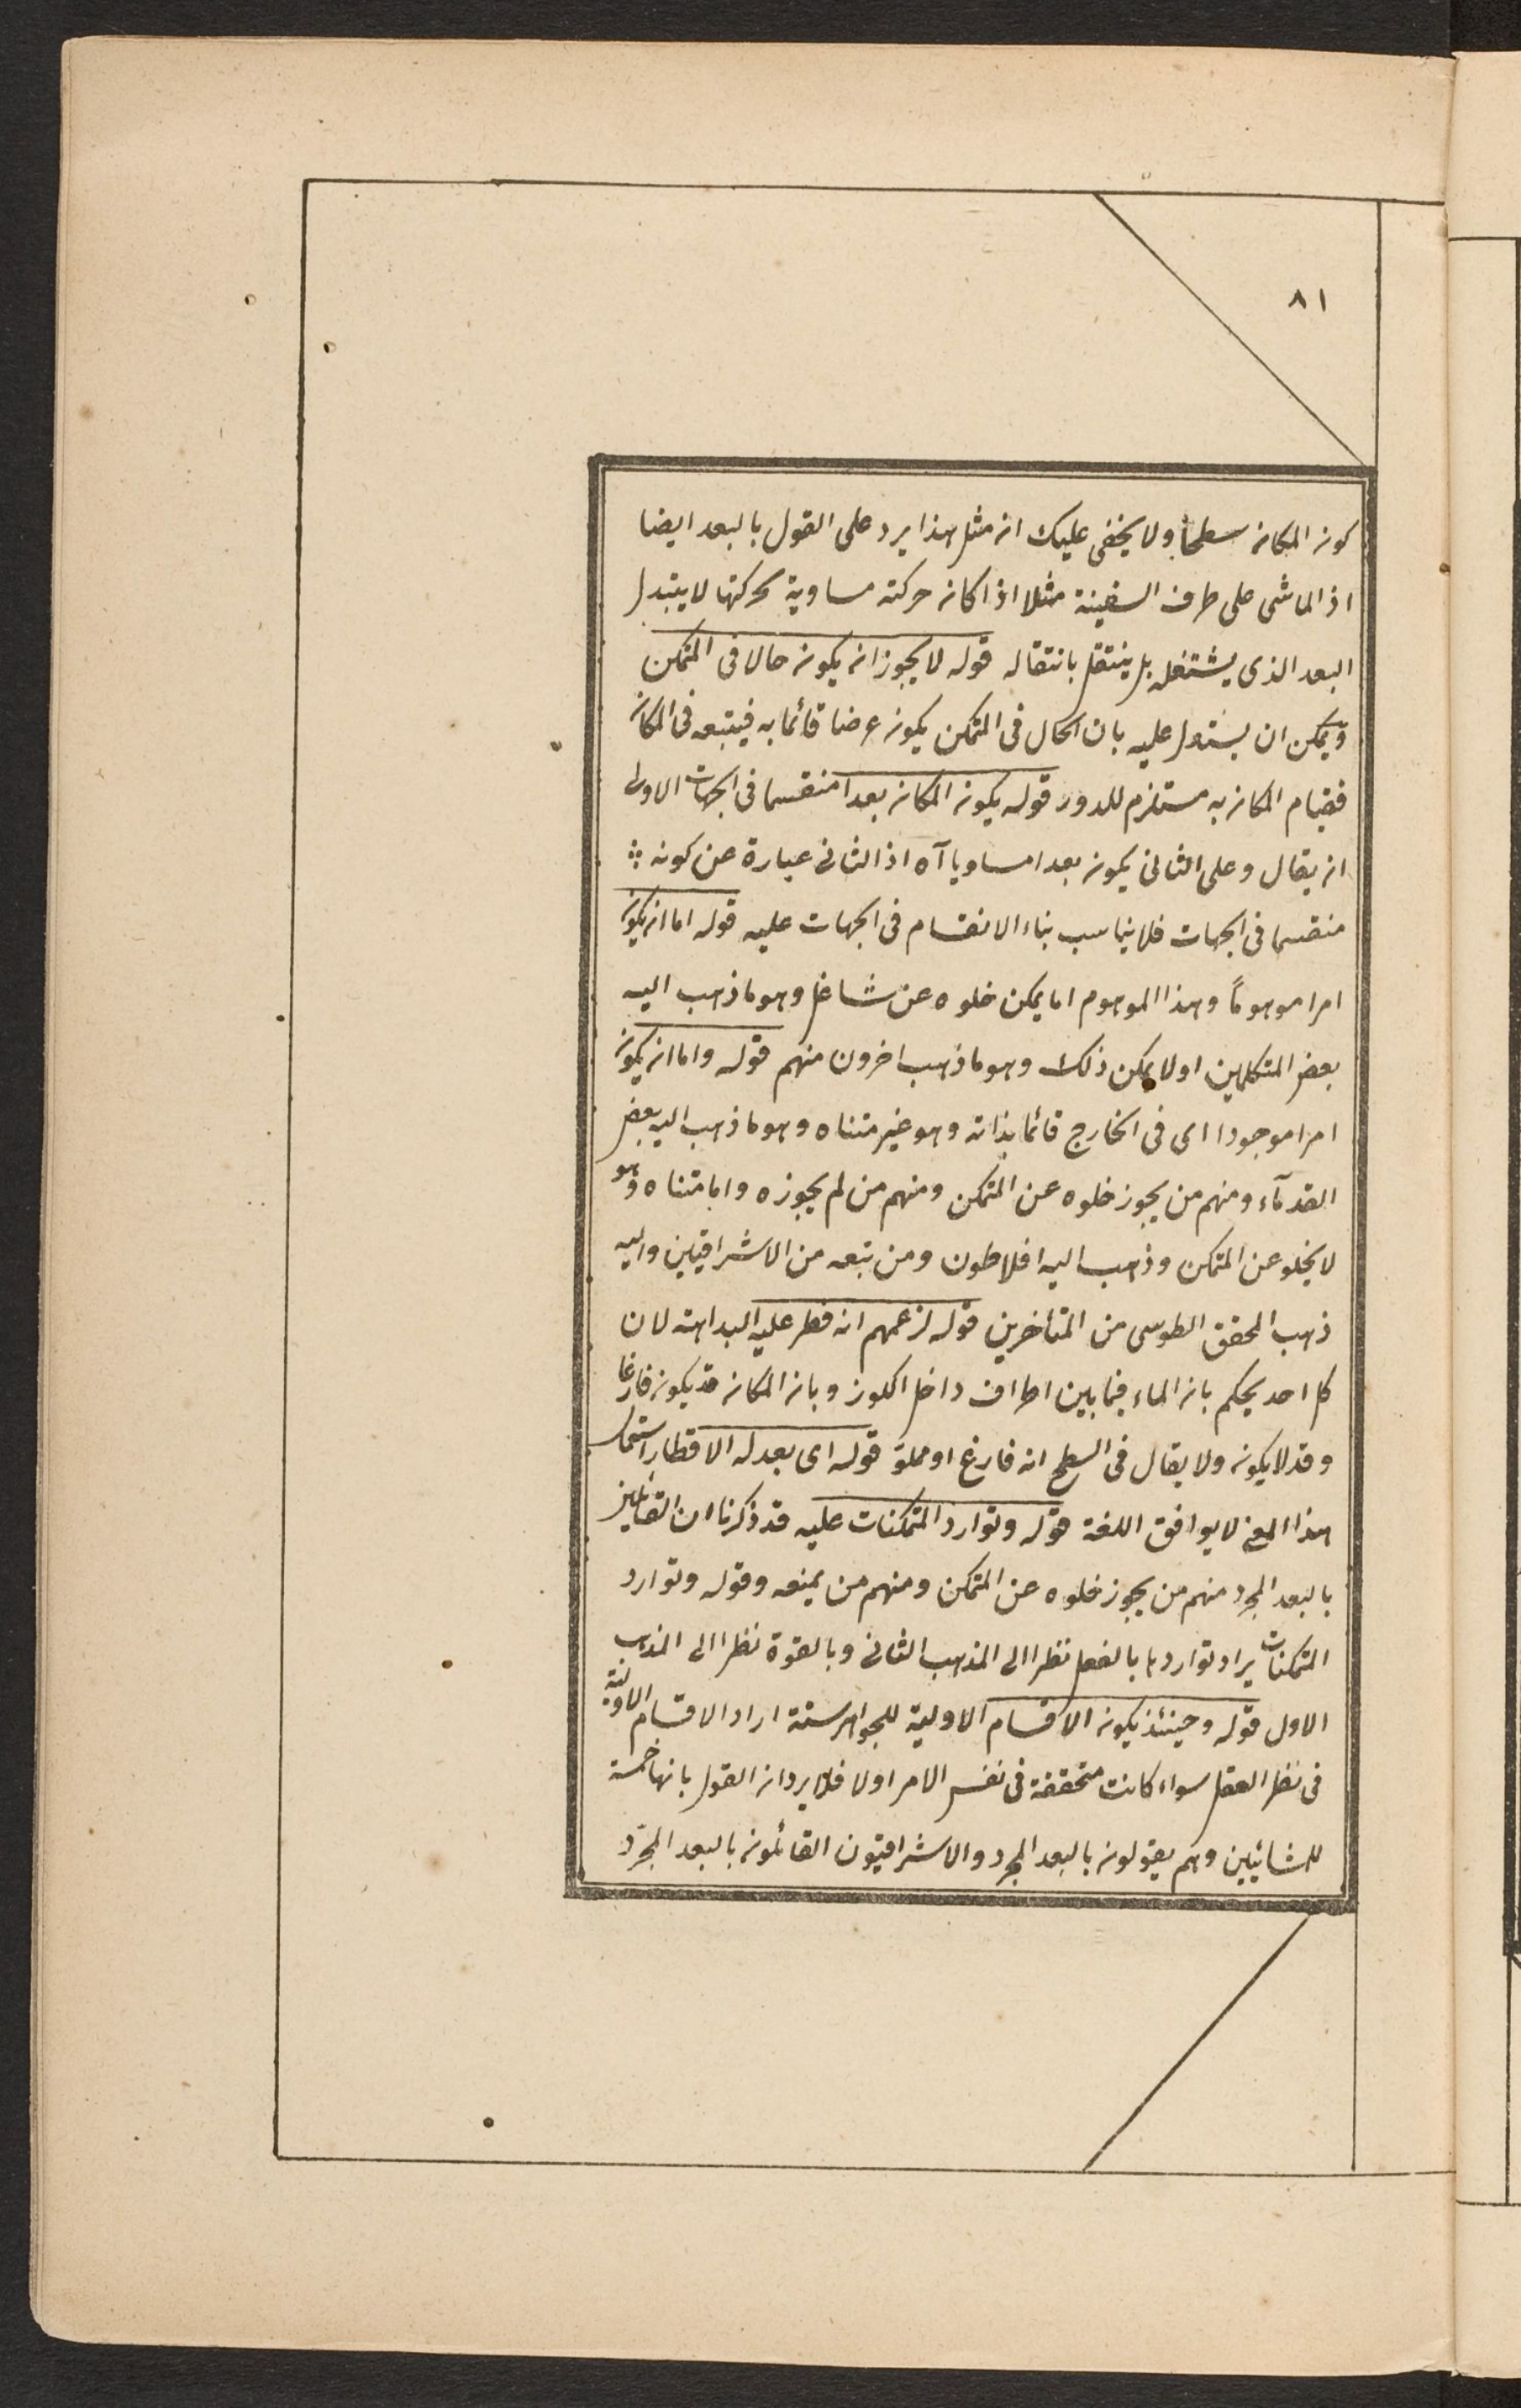 ٨١
كون المكان سطحا ولا يخفى عليك ان مثل هذا يرد على القول بالبعد ايضا
اذ الماشى على طرف السفينة مثلا اذا كان حركته مساوية لحركتها لا يتبدل
البعد الذى يشتغله بل ينتقل بانتقاله قوله لا يجوز ان يكون حالا فى المتمكن
ويمكن ان يستدل عليه بان الحال فى المتمكن يكون عرضا قائما به فيتبعه فى المكان
فقيام المكان به مستلزم للدور قوله يكون المكان بعدا منقسما فى الجهات الاولى
ان يقال وعلى الثانى يكون بعدا مساويا آه اذ الثانى عبارة عن كونه
منقسما فى الجهات فلا يناسب بناء الانقسام فى الجهات عليه قوله اما ان يكون
امرا موهوماً وهذا الموهوم اما يمكن خلوه عن شاغل وهو ما ذهب اليه
بعض المتكلمين او لا يمكن ذلك وهو ما ذهب اخرون منهم قوله واما ان يكون
امرا موجودا اى فى الخارج قائما بذاته وهو غير متناه وهو ما ذهب اليه بعض
القدمآء ومنهم من يجوز خلوه عن المتمكن ومنهم من لم يجوزه واما متناه وهو
لا يخلو عن المتمكن وذهب اليه افلاطون ومن تبعه من الاشراقيين واليه
ذهب المحقق الطوسى من المتأخرين قوله لزعمهم انه فطر عليه البداهته لان
كل احد يحكم بان الماء فيما بين اطراف داخل الكوز وبان المكان قد يكون فارغا
وقد لا يكون ولا يقال فى السطح انه فارغ او مملوّ قوله اى بعد له الاقطار استعمال
هذا المعنى لا يوافق اللغة قوله وتوارد المتمكنات عليه قد ذكرنا ان القائلين
بالبعد المجرد منهم من يجوز خلوه عن المتمكن ومنهم من يمنعه وقوله وتوارد
المتمكنات يراد تواردها بالفعل نظرا الى المذهب الثانى وبالقوة نظرا الى المذهب
الاول قوله وحينئذ يكون الاقسام الاولية للجواهر ستة اراد الاقسام الاولية
فى نظر العقل سواء كانت متحققة فى نفس الامر اولا فلا يرد ان القول بانها خمسة
للمشائيين وهم يقولون بالبعد المجرد والاشراقيون القائلون بالبعد المجرّد